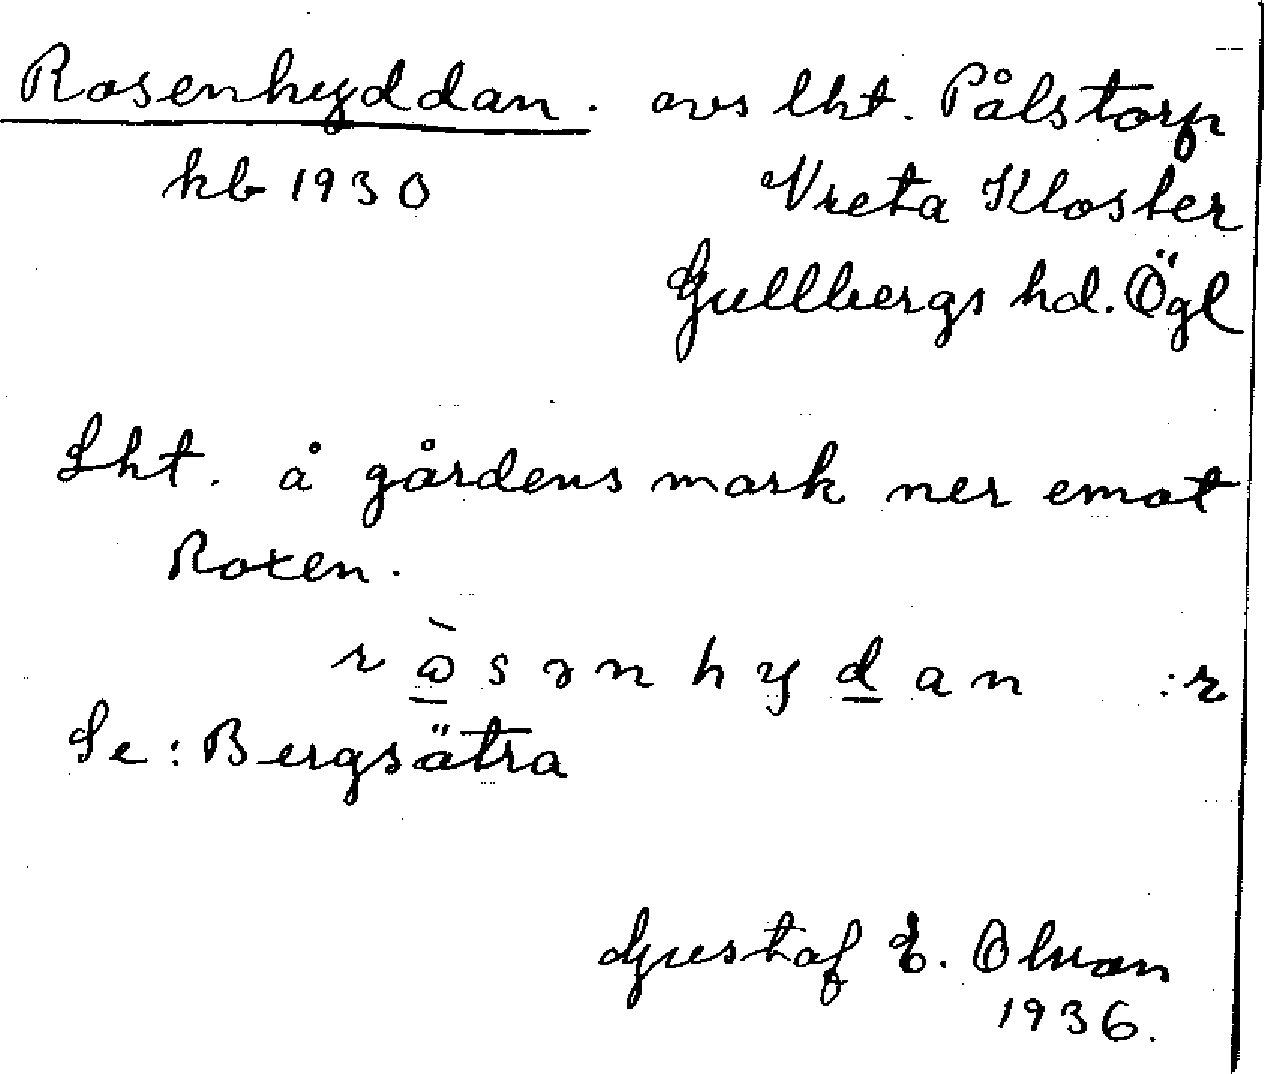 Rosenhyddan. avs lht. Pålstorp
kb 1930 Vreta Kloster
Gullbergs hd. Ögl
Lht. å gårdens mark ner emot
Roxen.
r ὼ s ə n h y d a n :r
Se: Bergsätra
Gustaf E. Olson
1936.